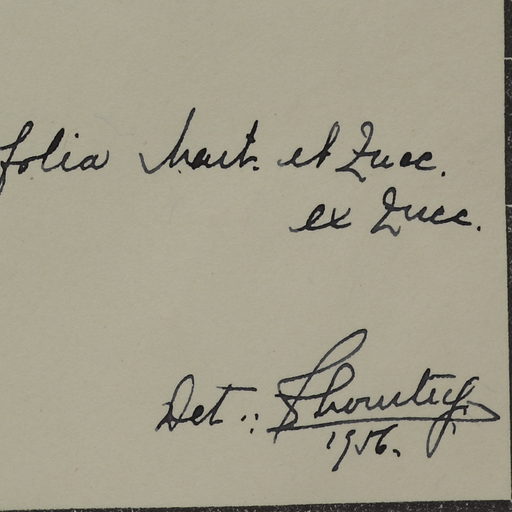 folia Mart. et Zucc.
ex Zucc.
Det.:
1956.